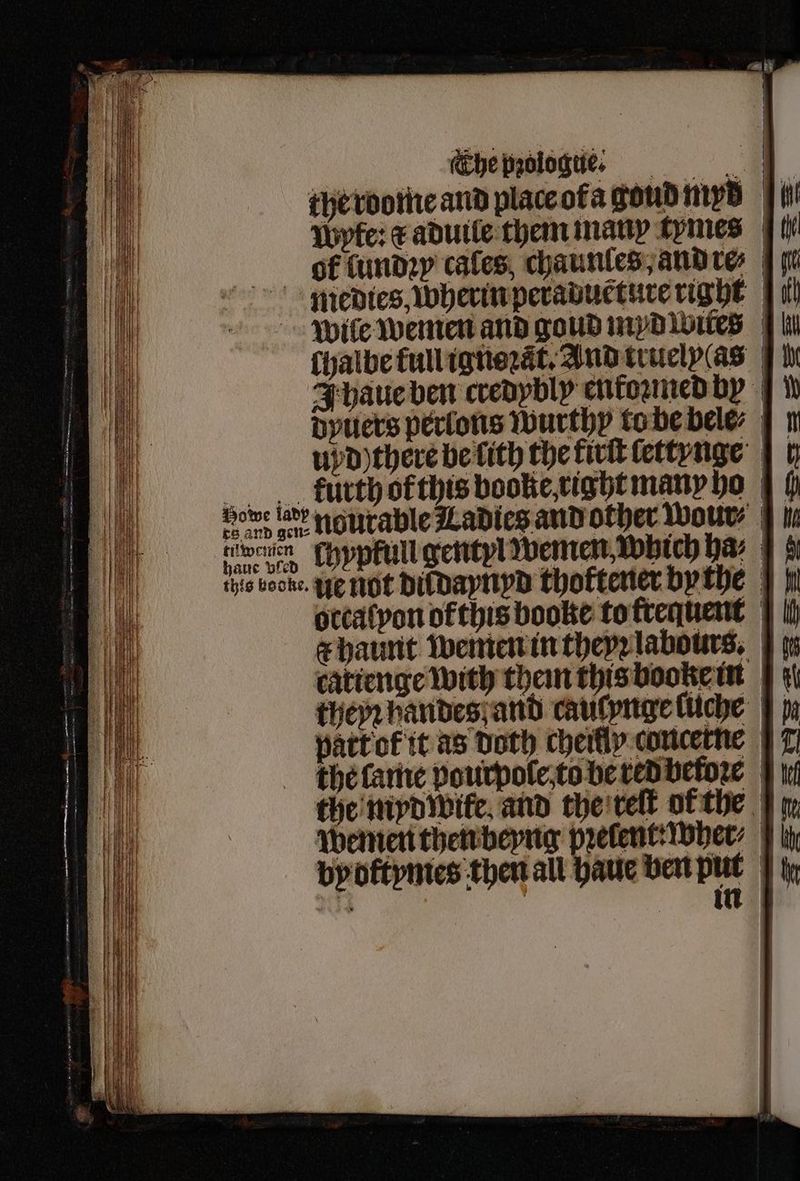 The prologue.
the roome and place of a goud myd
wyfe: & aduise them many tymes
of sundry cases, chaunses, and re-
medies, wherin peraduēture right
wise wemen and goud mydwifes
shalbe full ignorāt. And truely (as
I haue ben credybly enformed by
dyuers persons wurthy to be bele-
uyd) there be sith the first settynge
furth of this booke, right many ho
nourable Ladies and other Wour-
shypfull gentyl wemen, which ha-
ue not disdaynyd thoftener by the
occasyon of this booke to frequent
& haunt wemen in theyr labours,
carienge with them this booke in
theyr handes, and causynge suche
part of it as doth cheifly concerne
the same pourpose, to be red before
the mydwife, and the rest of the
wemen then beyng present: wher-
by oftymes then all haue ben put
in
Howe lady
es and gen-
tilwemen
haue vsed
this booke.